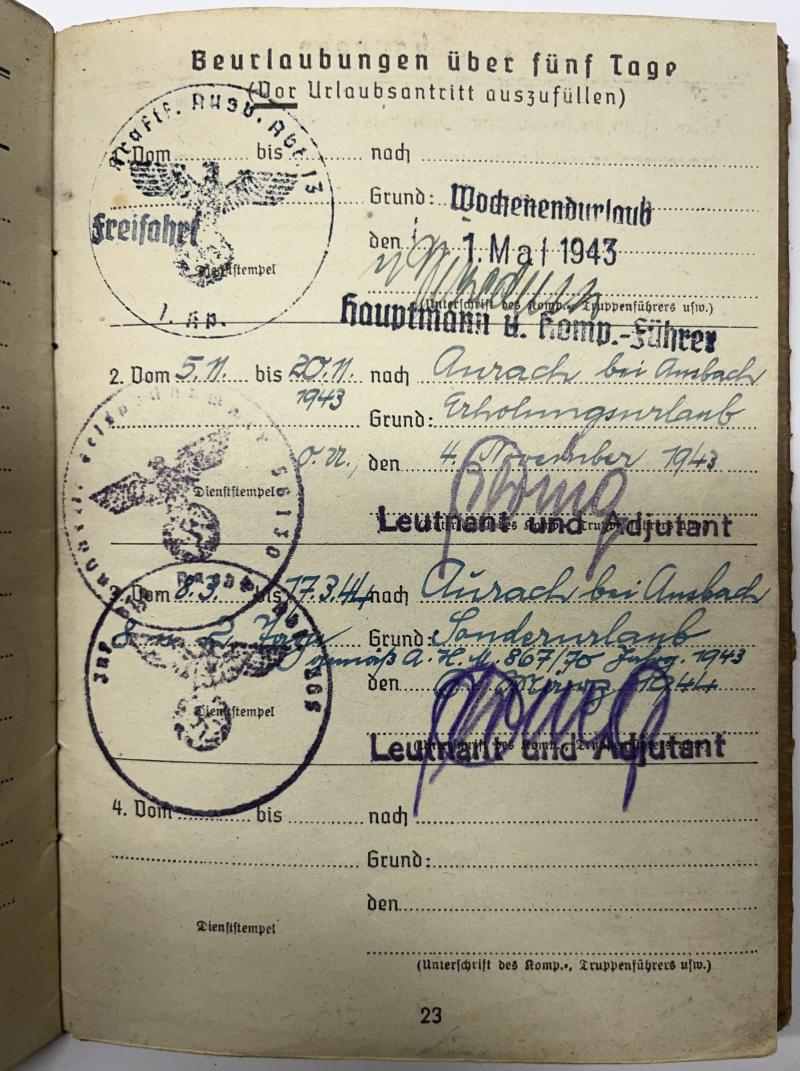 Beurlaubungen über fünf Tage
(Vor Urlaubsantritt auszufüllen)
Kraftf. Ausb. Abt. 13
Vom bis nach
Grund: Wochenendurlaub
Freifahrt
den 1. Mai 1943
Dienststempel
(Unterschrift des Komp., Truppenführers usw.)
1. Kp.
Hauptmann u. Komp.-Führer
2. Vom 5.11. bis 20.11. nach Aurach bei Ansbach
1943
Grund: Erholungsurlaub
O.U., den 4. November 1943
Dienststempel
Leutnant und Adjutant
56130
3. Vom 8.3. bis 17.3.44 nach Aurach bei Ansbach
8 u. 2 Tage Grund: Sonderurlaub
gemäß A.H.M. 867/70 1943
den März 1944
Dienststempel
Leutnant und Adjutant
4. Vom bis nach
Grund:
den
Dienststempel
(Unterschrift des Komp., Truppenführers usw.)
23